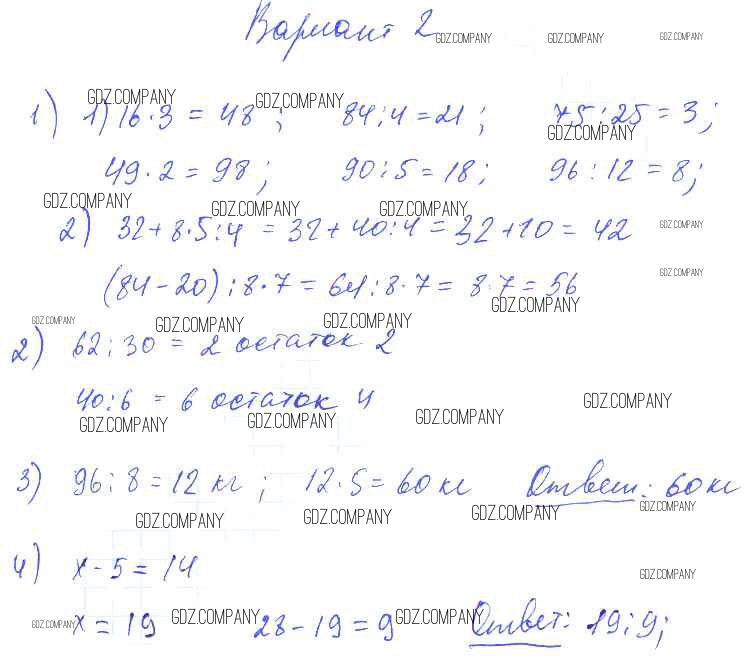 Вариант 2
GDZ.COMPANY GDZ.COMPANY GDZ.COMPANY
GDZ.COMPANY GDZ.COMPANY
1) 1) 16·3 = 48 ; 84:4 = 21 ; 75:25 = 3 ;
GDZ.COMPANY
49·2 = 98 ; 90:5 = 18 ; 96:12 = 8 ;
GDZ.COMPANY GDZ.COMPANY GDZ.COMPANY
2) 32 + 8·5:4 = 32 + 40:4 = 32 + 10 = 42 GDZ.COMPANY
GDZ.COMPANY
(84 - 20) : 8·7 = 64:8·7 = 8·7 = 56
GDZ.COMPANY
GDZ.COMPANY GDZ.COMPANY GDZ.COMPANY
2) 62:30 = 2 остаток 2
40:6 = 6 остаток 4 GDZ.COMPANY
GDZ.COMPANY GDZ.COMPANY GDZ.COMPANY
3) 96:8 = 12 кг ; 12·5 = 60 кг Ответ: 60 кг
GDZ.COMPANY GDZ.COMPANY GDZ.COMPANY GDZ.COMPANY
4) x - 5 = 14
GDZ.COMPANY
GDZ.COMPANY x = 19 GDZ.COMPANY 28 - 19 = 9 GDZ.COMPANY Ответ: 19; 9;